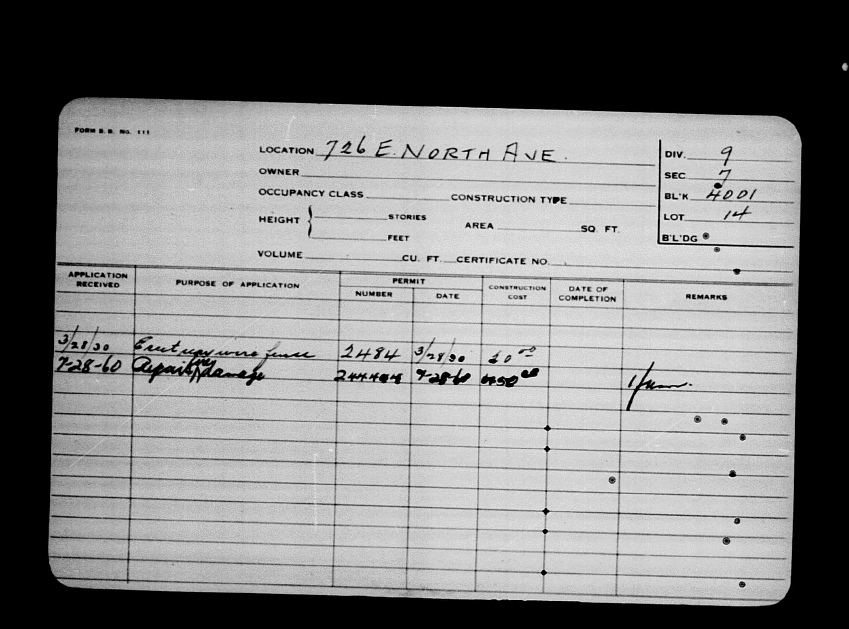 FORM B.B. No. 111
LOCATION 726 E. NORTH AVE.
OWNER
OCCUPANCY CLASS CONSTRUCTION TYPE
HEIGHT { STORIES
FEET
AREA SQ. FT.
VOLUME CU. FT. CERTIFICATE NO.
DIV. 9
SEC 7
BL'K 4001
LOT 14
B'L'DG
APPLICATION RECEIVED PURPOSE OF APPLICATION PERMIT NUMBER DATE CONSTRUCTION COST DATE OF COMPLETION REMARKS
3/28/30 Erect wire fence 2484 3/28/30
9-28-60 Repair fire damage 9-28-60